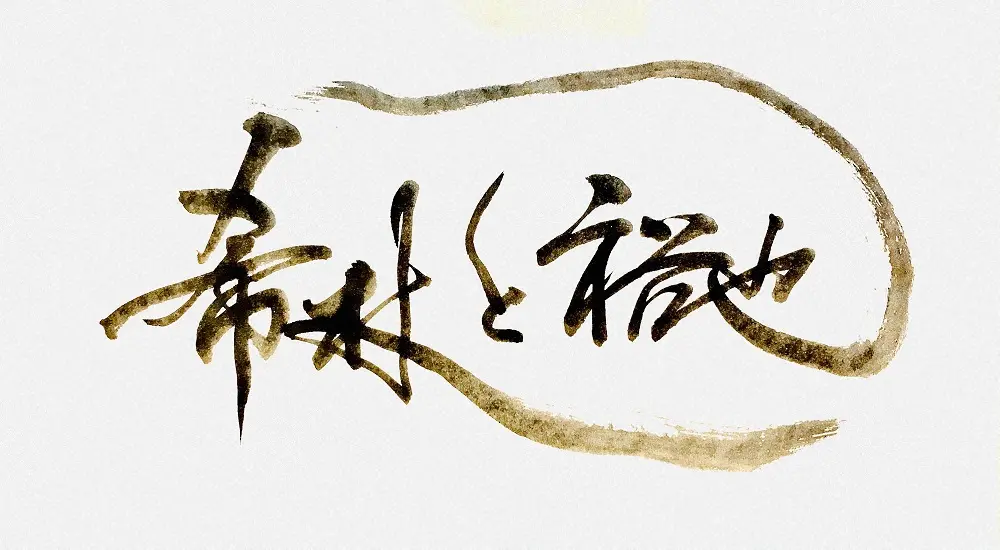 希林と裕也